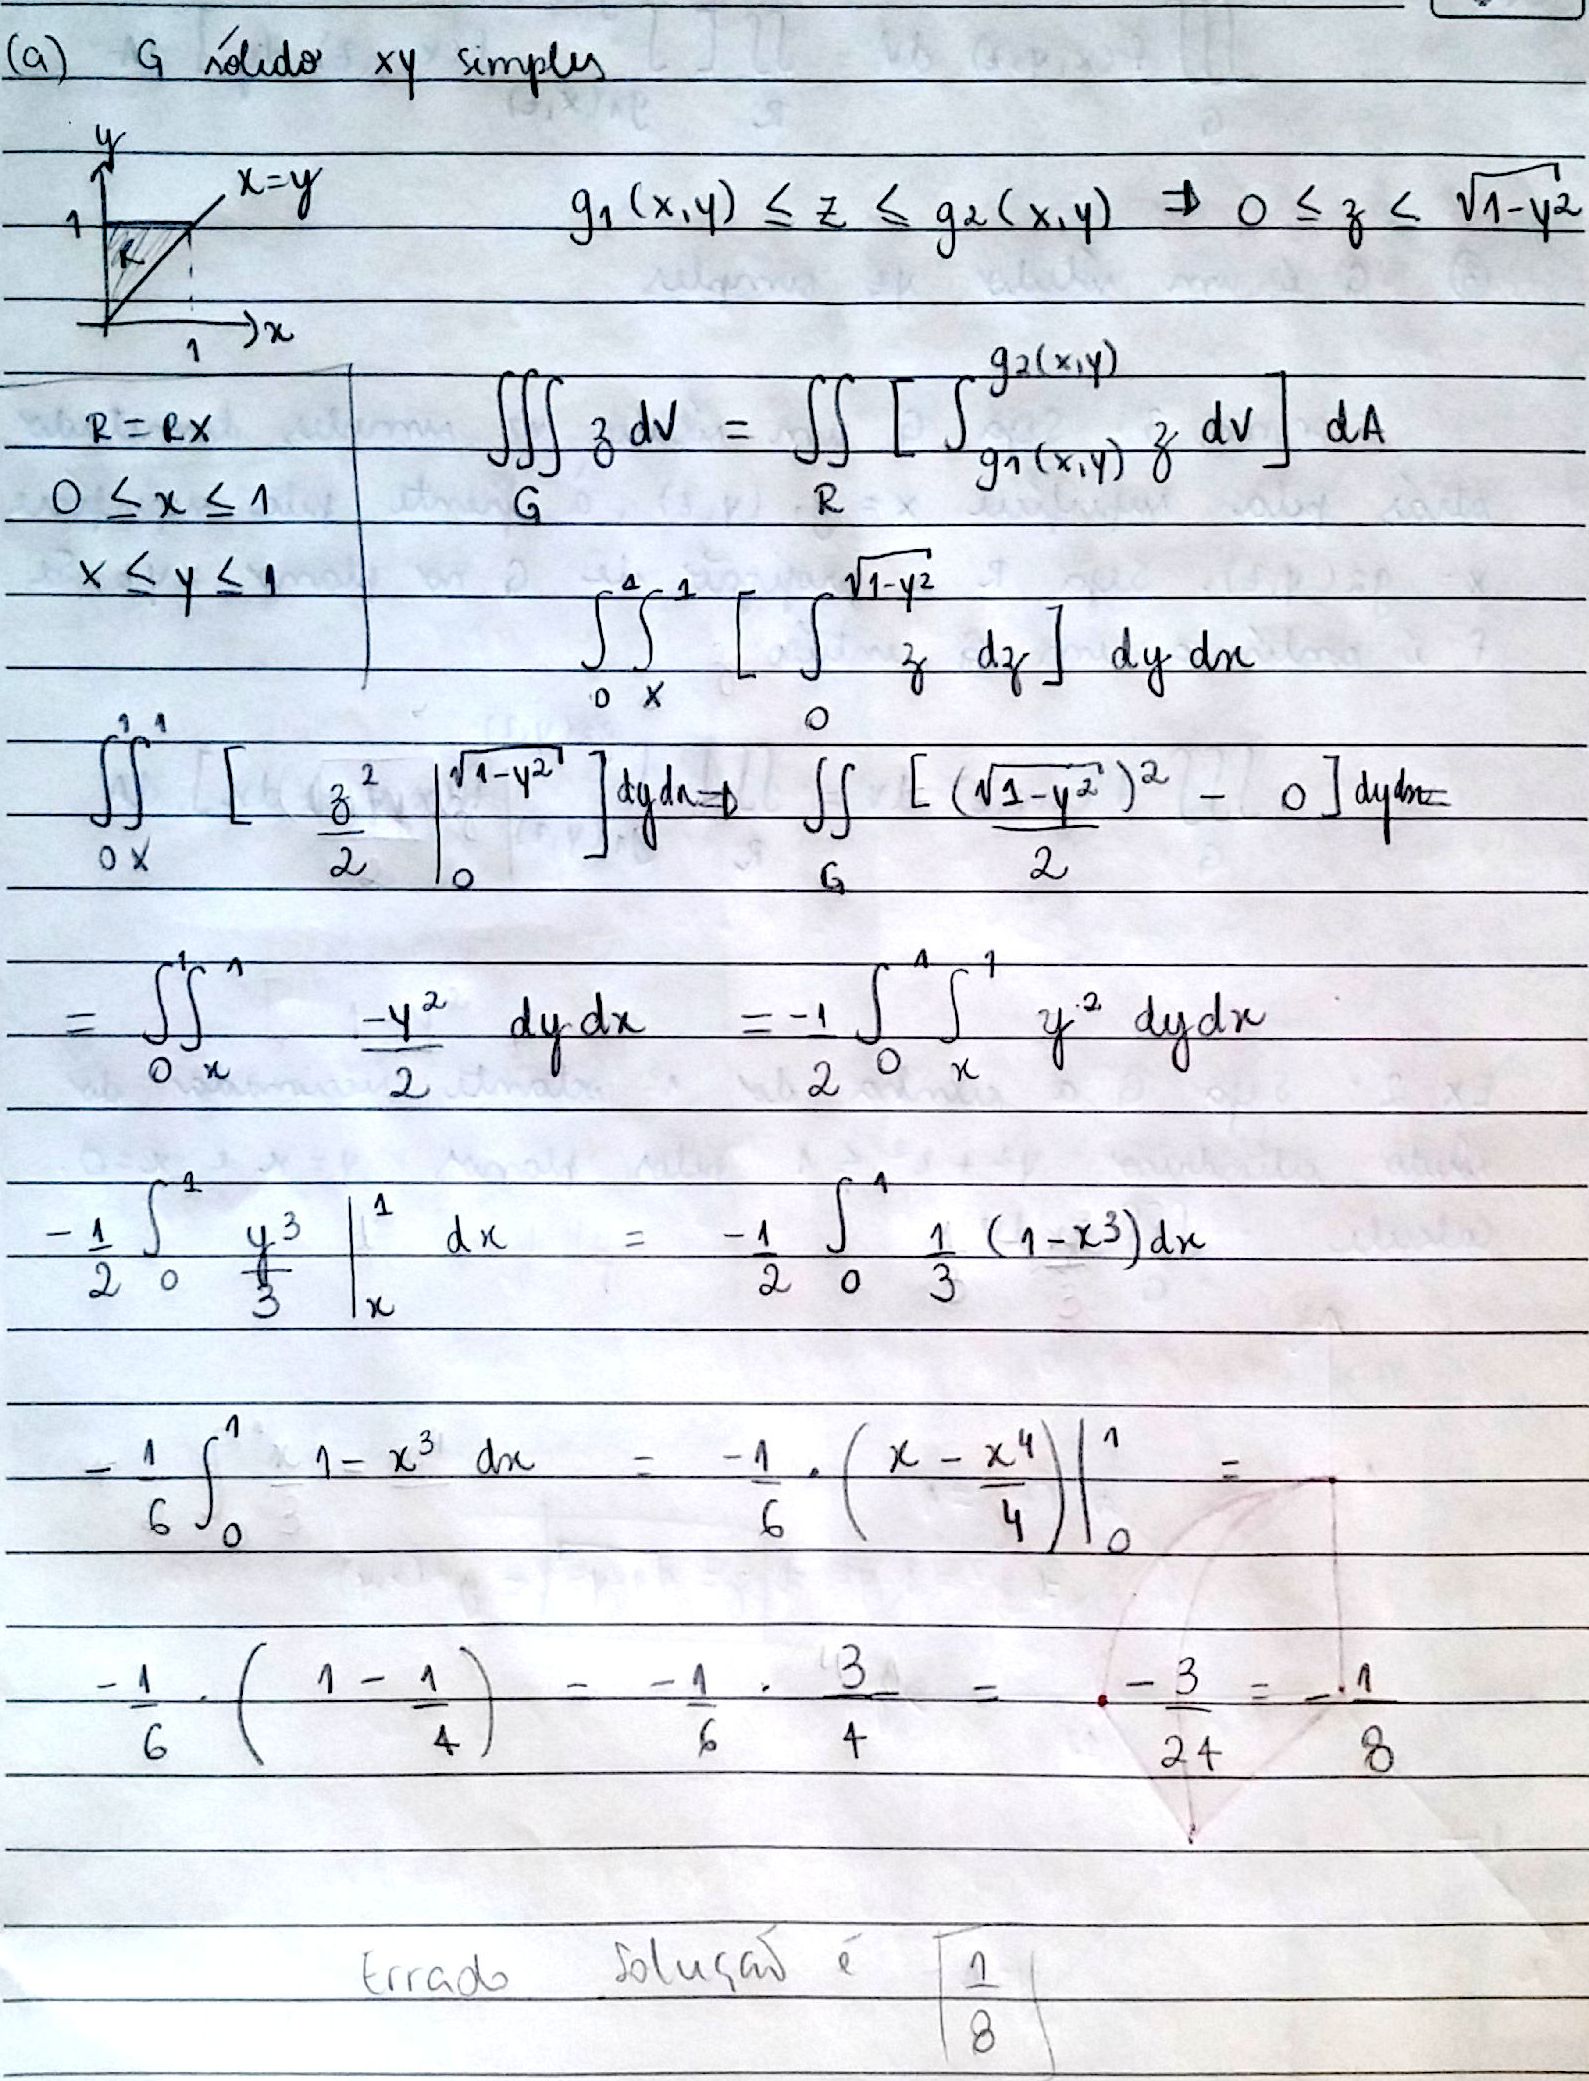 (a) G sólido xy simples
y
x=y
1
R
1
x
g1(x,y) ≤ z ≤ g2(x,y) ⇒ 0 ≤ z ≤ √1-y²
R=RX
0 ≤ x ≤ 1
x ≤ y ≤ 1
∭_G z dV = ∬_R [ ∫_{g1(x,y)}^{g2(x,y)} z dV ] dA
∫_0^1 ∫_x^1 [ ∫_0^{√1-y²} z dz ] dy dx
∫_0^1 ∫_x^1 [ z²/2 |_0^{√1-y²} ] dy dx ⇒ ∬_G [ (√1-y²)²/2 - 0 ] dy dx =
= ∫_0^1 ∫_x^1 -y²/2 dy dx = -1/2 ∫_0^1 ∫_x^1 y² dy dx
-1/2 ∫_0^1 y³/3 |_x^1 dx = -1/2 ∫_0^1 1/3 (1-x³) dx
-1/6 ∫_0^1 1-x³ dx = -1/6 · (x - x⁴/4) |_0^1 =
-1/6 · (1 - 1/4) = -1/6 · 3/4 = -3/24 = -1/8
Errado solução é 1/8